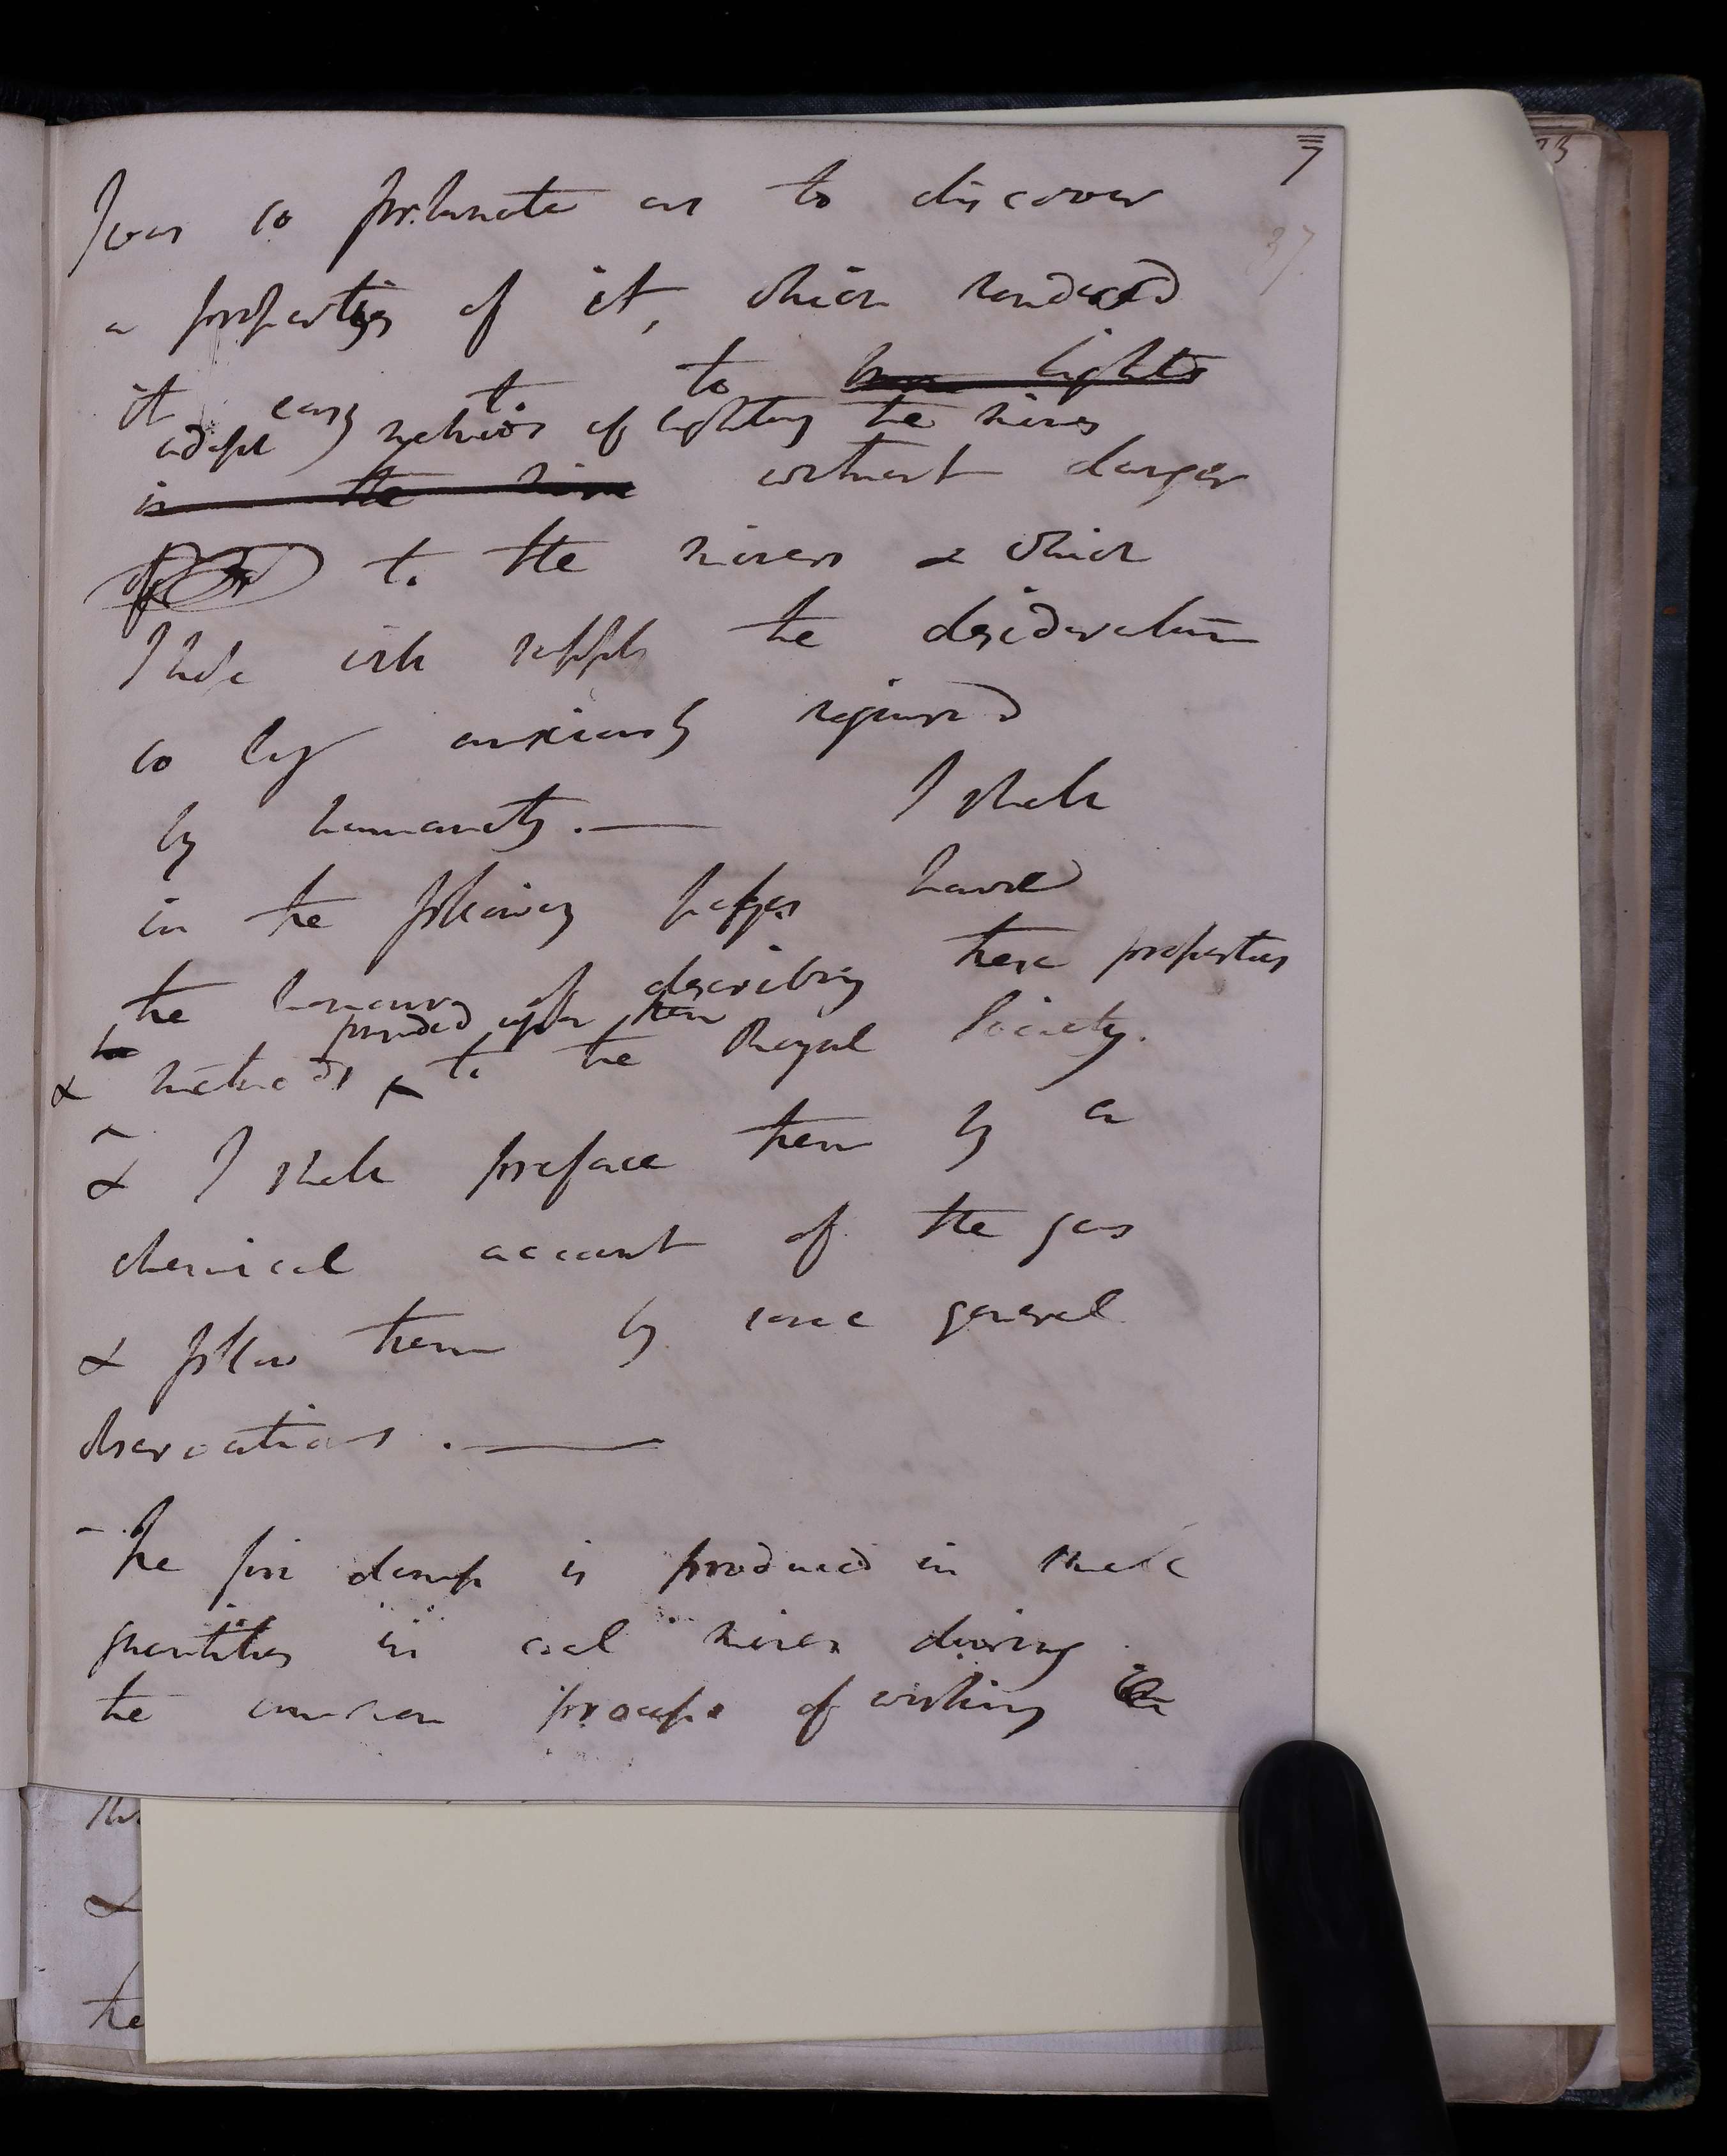 7
37
I was so fortunate as to discover
a properties of it, which rendered
it easy to to burn lights
adopt methods of lighting the mines
in the mine without danger
to the miners & which
I hope will supply the desideratum
so long anxiously required
by humanity. — I shall
in the following pages have
the honour of describing these properties
founded upon them
& methods to the Royal Society.
& I shall preface them by a
chemical account of the gas
& follow them by some general
observations. —
- The fire damp is produced in small
quantities in coal mines during
the common process of working
&
the